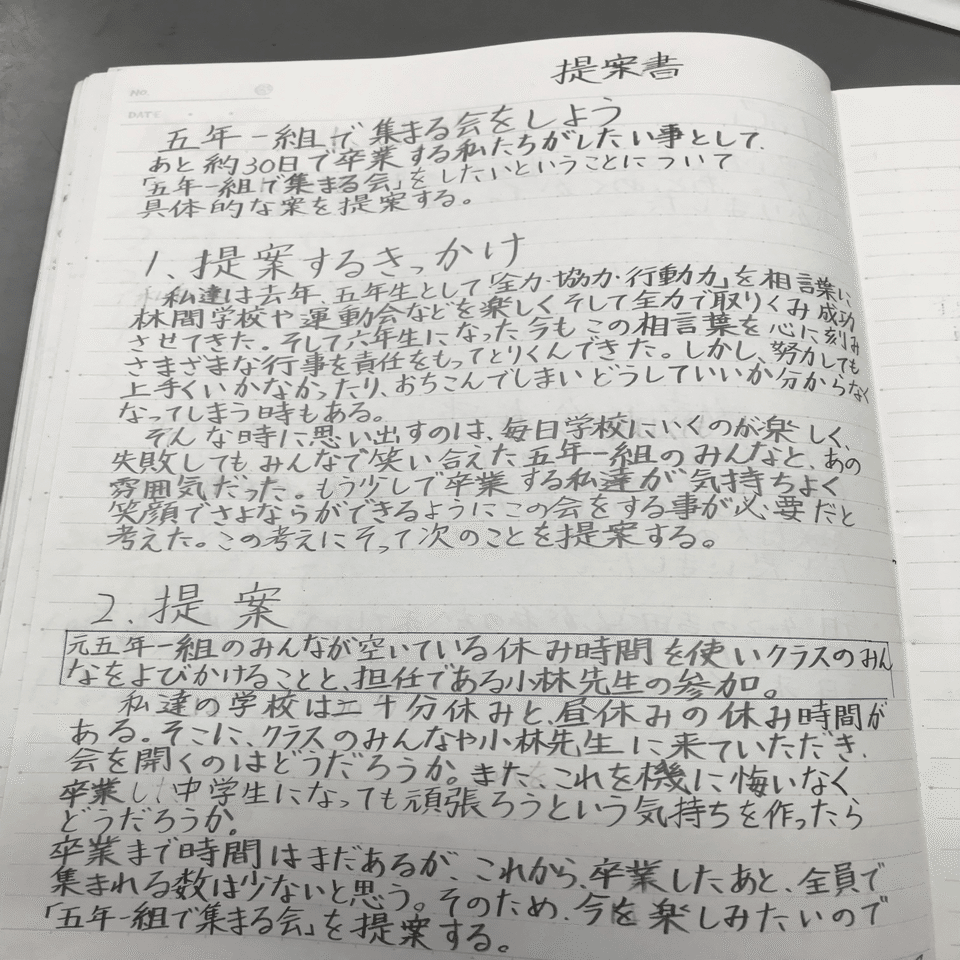 No.
DATE
提案書
五年一組で集まる会をしよう
あと約30日で卒業する私たちがしたい事として、
「五年一組で集まる会」をしたいということについて
具体的な案を提案する。
1、提案するきっかけ
私達は去年、五年生として「全力・協力・行動力」を相言葉に
林間学校や運動会などを楽しくそして全力で取りくみ成功
させてきた。そして六年生になった今もこの相言葉を心に刻み
さまざまな行事を責任をもってとりくんできた。しかし、努力しても
上手くいかなかったり、おちこんでしまいどうしていいか分からなく
なってしまう時もある。
そんな時に思い出すのは、毎日学校にいくのが楽しく、
失敗してもみんなで笑い合えた五年一組のみんなと、あの
雰囲気だった。もう少しで卒業する私達が気持ちよく
笑顔でさよならができるようにこの会をする事が必要だと
考えた。この考えにそって次のことを提案する。
2、提案
元五年一組のみんなが空いている休み時間を使いクラスのみん
なをよびかけることと、担任である小林先生の参加。
私達の学校は二十分休みと、昼休みの休み時間が
ある。そこに、クラスのみんなや小林先生に来ていただき、
会を開くのはどうだろうか。また、これを機に悔いなく
卒業し、中学生になっても頑張ろうという気持ちを作ったら
どうだろうか。
卒業まで時間はまだあるが、これから、卒業したあと、全員で
集まれる数は少ないと思う。そのため、今を楽しみたいので
「五年一組で集まる会」を提案する。